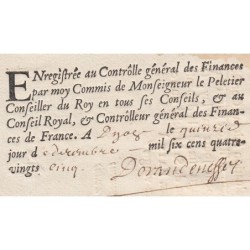 ENregistrée au Contrôlle général des Finances
par moy Commis de Monseigneur le Peletier
Conseiller du Roy en tous ses Conseils, & au
Conseil Royal, & Contrôlleur général des Finan-
ces de France. A Dijon le quinze
jour de decembre mil six cens quatre-
vingts cinq.